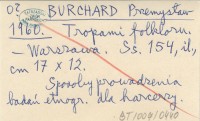 02 BURCHARD Przemysław
1960. Tropami folkloru.
– Warszawa. Ss. 154, il,
cm 17 x 12.
Sposoby prowadzenia
badań etnogr. dla harcerzy.
BT/004/0440